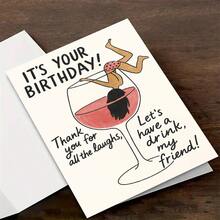 IT'S YOUR
BIRTHDAY!
Thank
you for
all the laughs,
Let's
have a
drink,
my
friend!